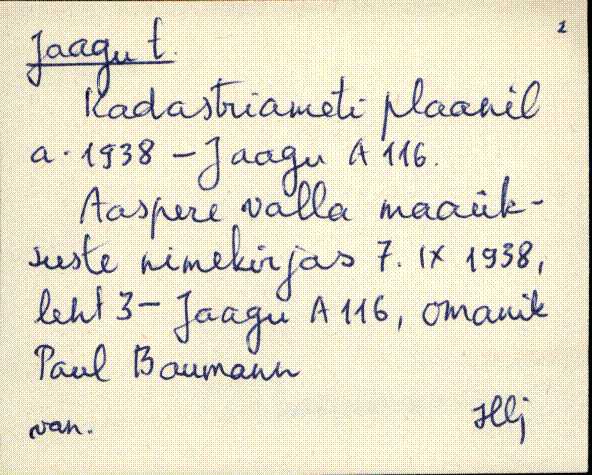 2
Jaagu t.
Kadastriameti plaanil
a. 1938 – Jaagu A 116.
Aaspere valla maaük-
suste nimekirjas 7. IX 1938,
leht 3 – Jaagu A 116, omanik
Paul Baumann
van.